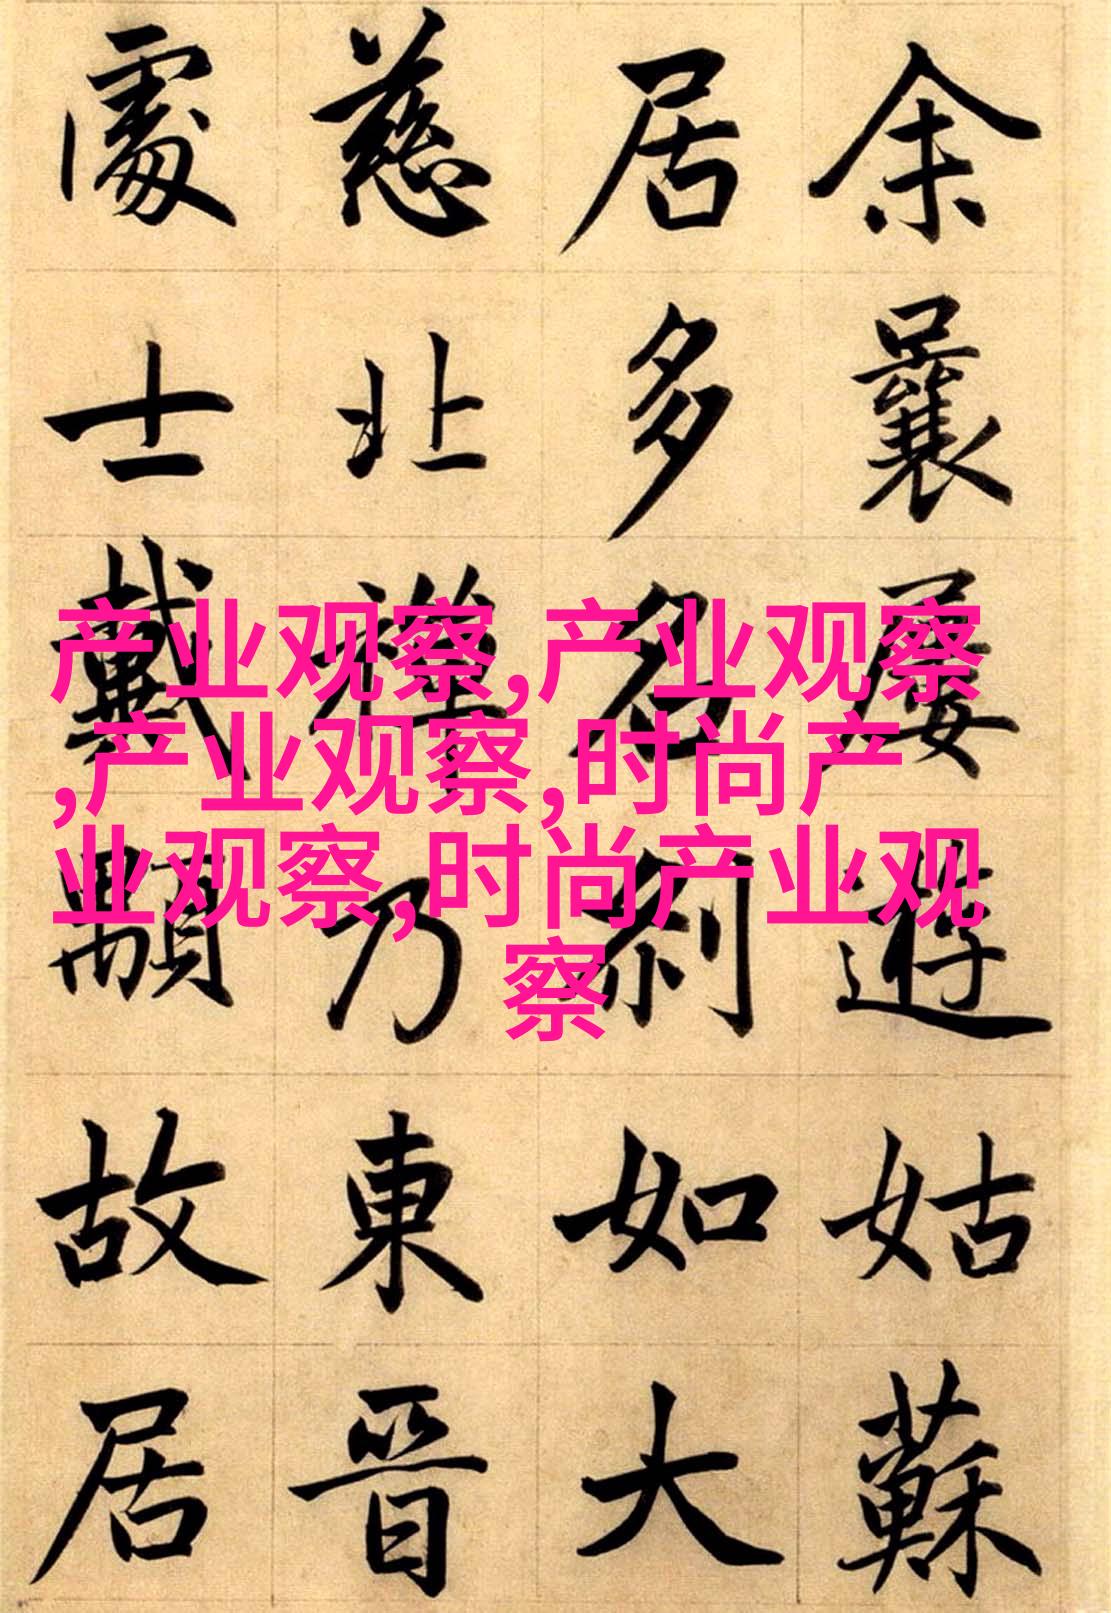 余曩屢遊姑蘇
居多名刹如大
慈北禪乃東晉
處士戴顒故居
产业观察,产业观察
,产业观察,时尚产
业观察,时尚产业观
察